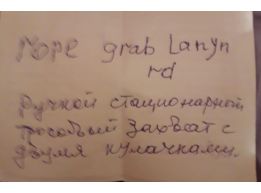 rope grab Lanyn
rd
Ручной стационарный
тросовый захват с
двумя кулачками.